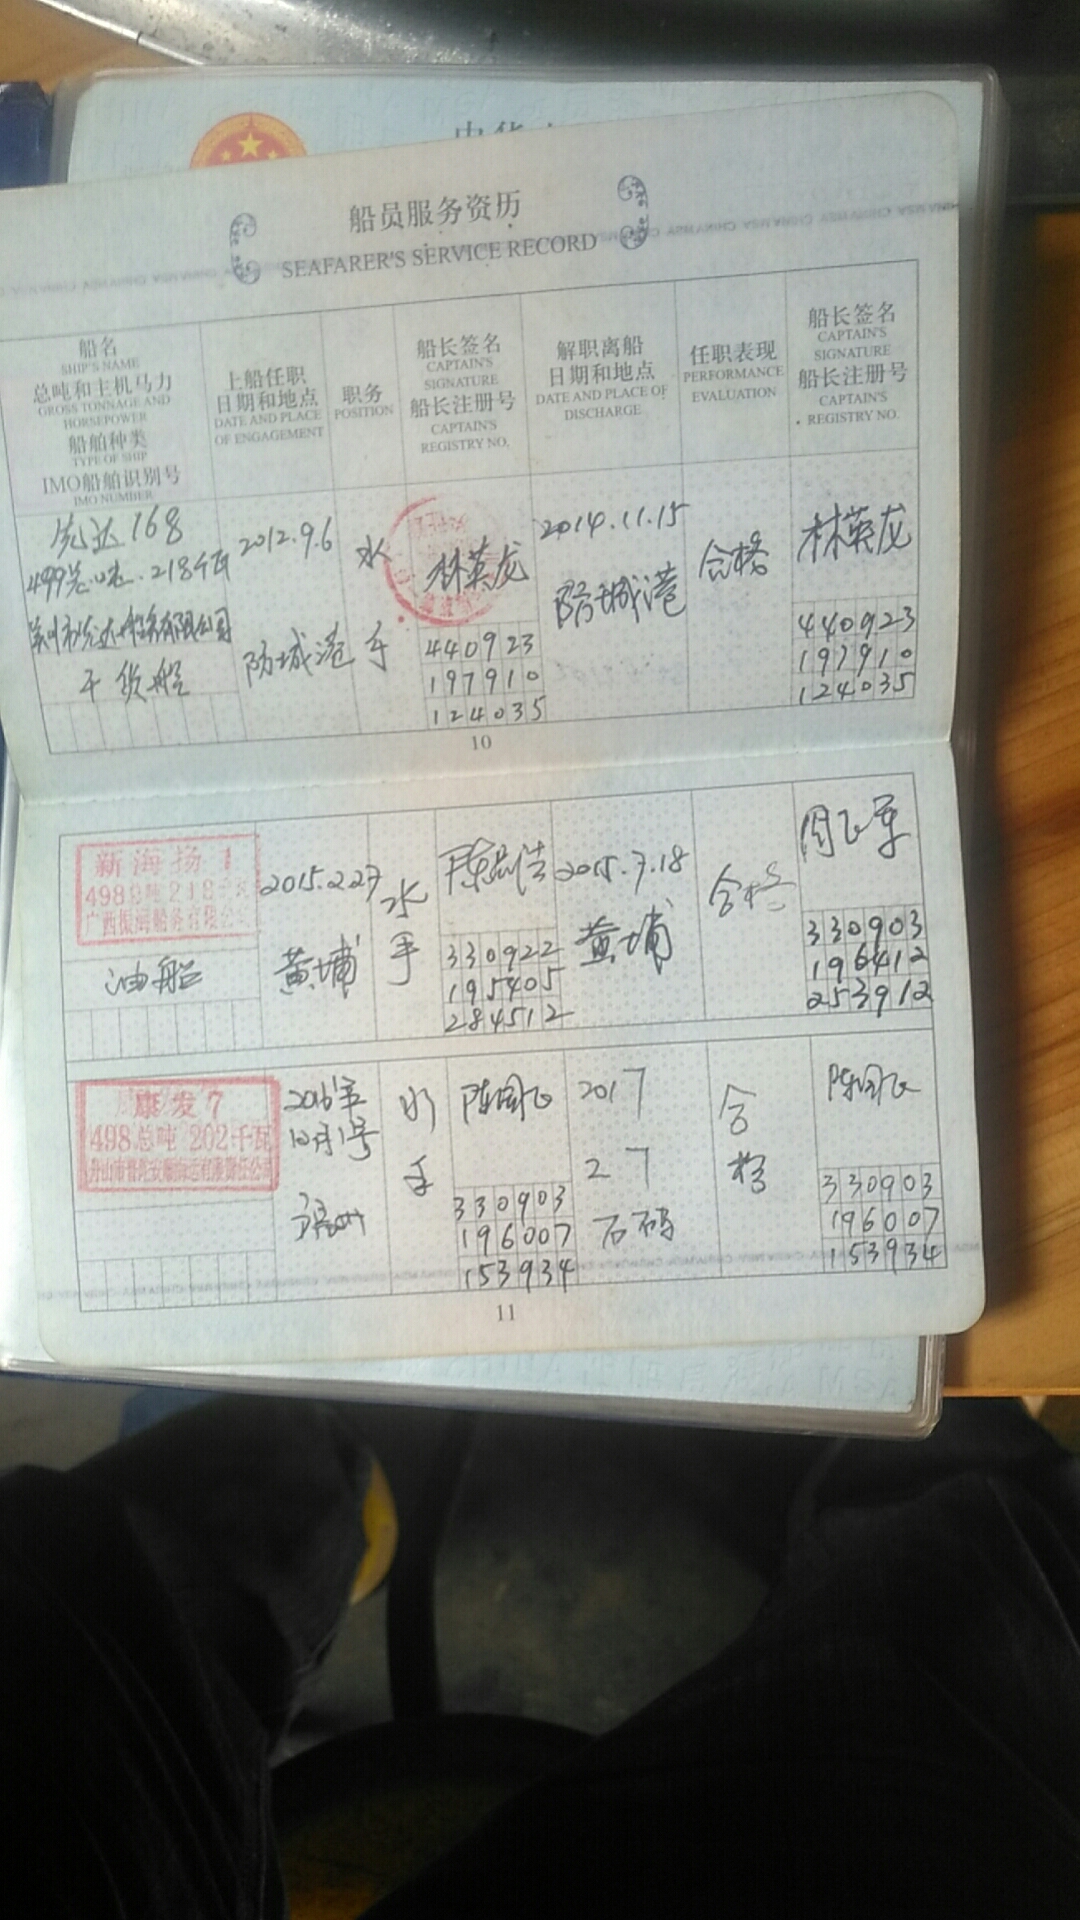 船员服务资历
SEAFARER'S SERVICE RECORD
船名
SHIP'S NAME
总吨和主机马力
GROSS TONNAGE AND
HORSEPOWER
船舶种类
TYPE OF SHIP
IMO船舶识别号
IMO NUMBER
上船任职
日期和地点
DATE AND PLACE
OF ENGAGEMENT
职务
POSITION
船长签名
CAPTAIN'S
SIGNATURE
船长注册号
CAPTAIN'S
REGISTRY NO.
解职离船
日期和地点
DATE AND PLACE OF
DISCHARGE
任职表现
PERFORMANCE
EVALUATION
船长签名
CAPTAIN'S
SIGNATURE
船长注册号
CAPTAIN'S
REGISTRY NO.
先达168
499总吨.218千瓦
干货船
2012.9.6
防城港
水
手
林英龙
440923
197910
124035
2014.11.15
防城港
合格
林英龙
440923
197910
124035
10
新海扬1
498总吨218千瓦
广西振海船务有限公司
油船
2015.2.27
黄埔
水
手
330922
195405
284512
2015.7.18
黄埔
合格
330903
196412
253912
康发7
498总吨 202千瓦
2016年
10月1号
水
手
陈国飞
330903
196007
153934
2017
2 7
石码
合
格
陈国飞
330903
196007
153934
11